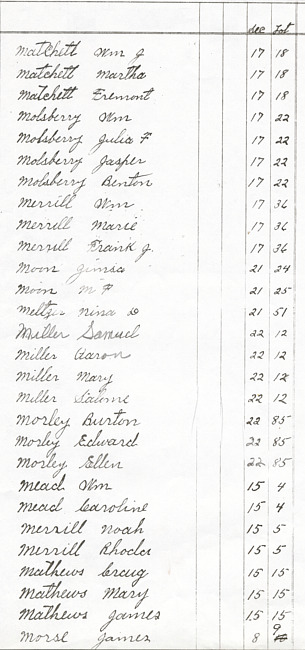 Sec Lot
Matchett Wm J 17 18
Matchett Martha 17 18
Matchett Fremont 17 18
Molsberry Wm 17 22
Molsberry Julia F 17 22
Molsberry Jasper 17 22
Molsberry Benton 17 22
Merrill Wm 17 36
Merrill Marie 17 36
Merrill Frank J. 17 36
Moon 21 24
Moon M F 21 25
Nina D 21 51
Miller Samuel 22 12
Miller Aaron 22 12
Miller Mary 22 12
Miller Salome 22 12
Morley Burton 22 85
Morley Edward 22 85
Morley Ellen 22 85
Mead Wm 15 4
Mead Caroline 15 4
Merrill Noah 15 5
Merrill Rhoda 15 5
Mathews Craig 15 15
Mathews Mary 15 15
Mathews James 15 15
Morse James 8 9